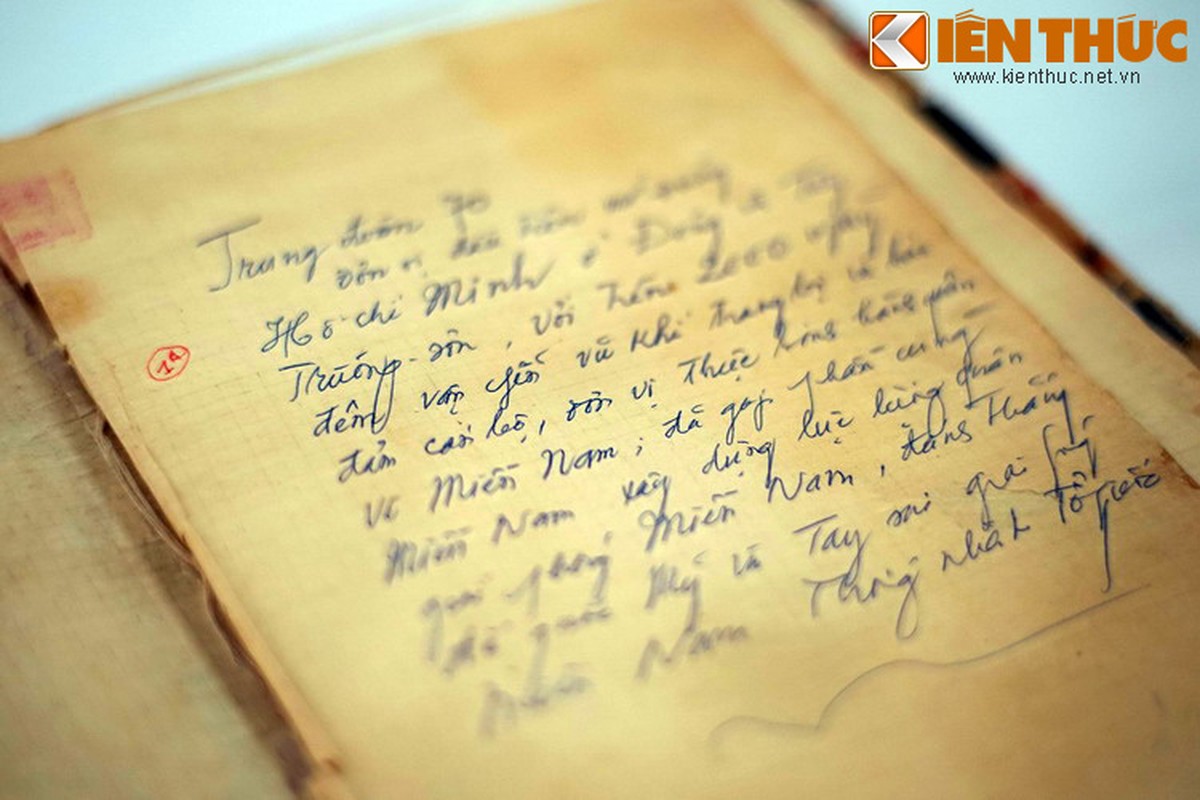 KIẾN THỨC
www.kienthuc.net.vn
Trung đoàn 70
đơn vị đầu tiên mở đường
Hồ chí Minh ở Đông và Tây
Trường-sơn, với trên 2000 ngày
đêm vận chuyển vũ khí trang bị và bảo
đảm cán bộ, đơn vị thực hành quân
về Miền Nam; đã góp phần cùng
Miền Nam xây dựng lực lượng quân
giải phóng Miền Nam, đánh thắng
đế quốc Mỹ và Tay sai giải phóng
Miền Nam Thống nhất Tổ quốc
1a